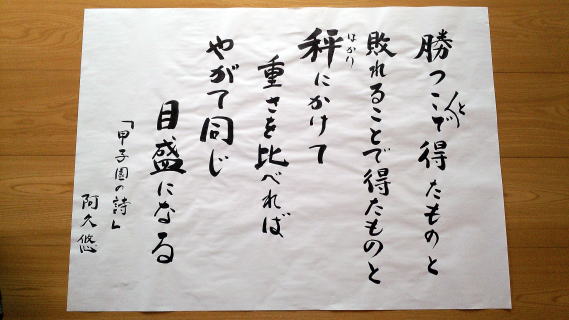 勝つことで得たものと
敗れることで得たものと
秤にかけて
はかり
重さを比べれば
やがて同じ
目盛になる
「甲子園の詩」
阿久悠